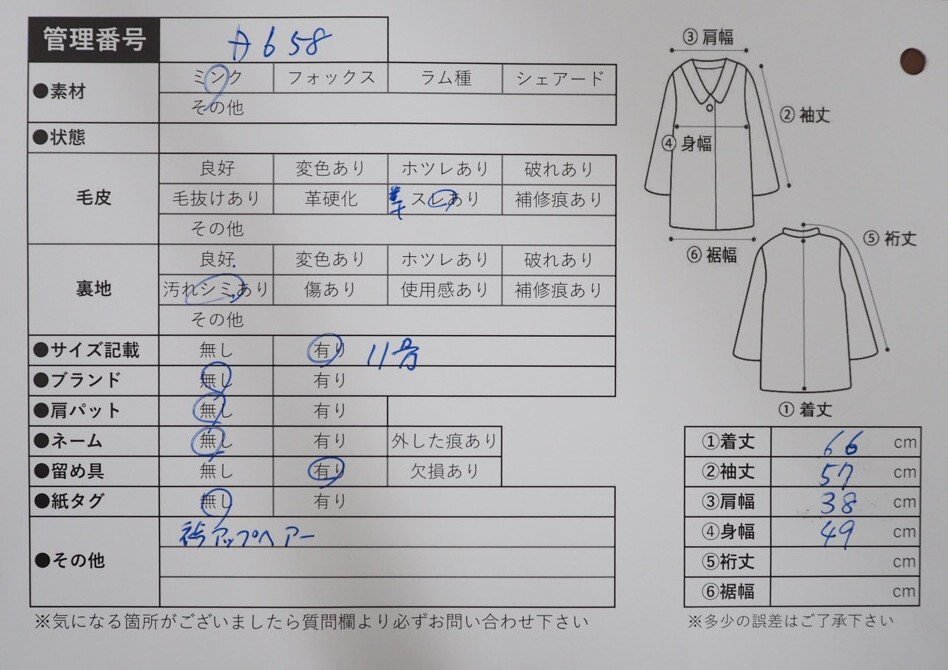 管理番号 A658
●素材 ミンク フォックス ラム種 シェアード
その他
●状態
毛皮 良好 変色あり ホツレあり 破れあり
毛抜けあり 革硬化 スレあり 補修痕あり
その他
裏地 良好 変色あり ホツレあり 破れあり
汚れシミあり 傷あり 使用感あり 補修痕あり
その他
●サイズ記載 無し 有り 11号
●ブランド 無し 有り
●肩パット 無し 有り
●ネーム 無し 有り 外した痕あり
●留め具 無し 有り 欠損あり
●紙タグ 無し 有り
●その他 アップヘアー
※気になる箇所がございましたら質問欄より必ずお問い合わせ下さい
③ 肩幅
② 袖丈
④ 身幅
⑥ 裾幅
⑤ 裄丈
① 着丈
①着丈 66 cm
②袖丈 57 cm
③肩幅 38 cm
④身幅 49 cm
⑤裄丈 cm
⑥裾幅 cm
※多少の誤差はご了承下さい